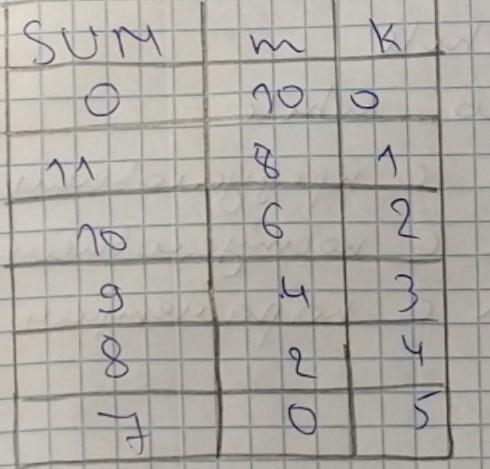 SUM m k
0 10 0
11 8 1
10 6 2
9 4 3
8 2 4
7 0 5